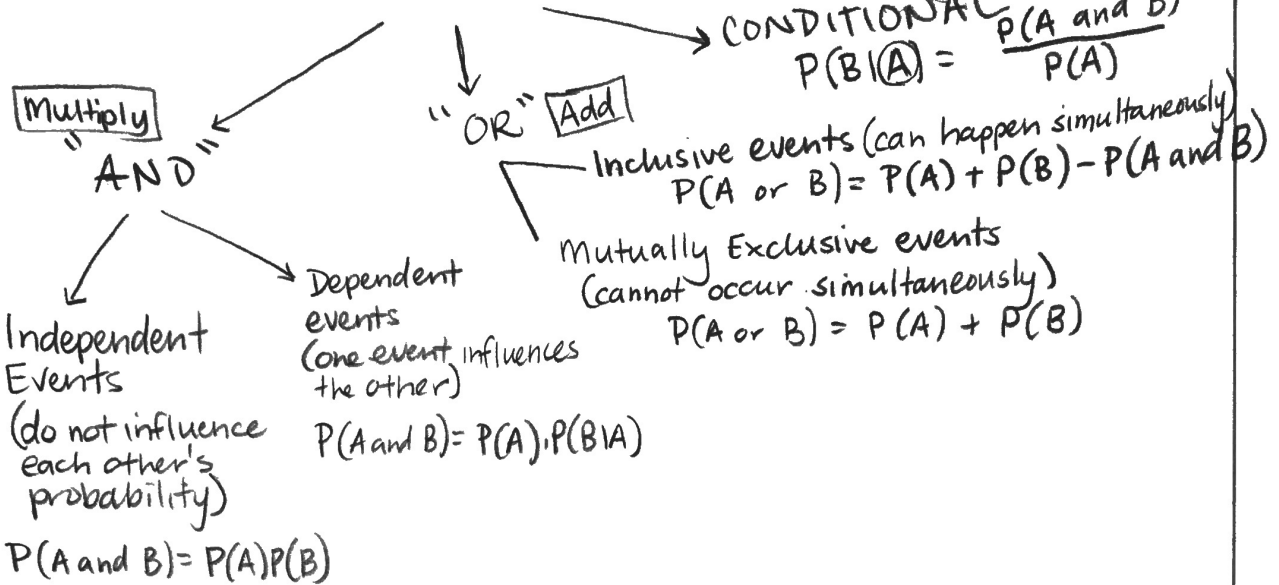 CONDITIONAL
P(B|A) = P(A and B)
P(A)
Multiply
"AND"
"OR" Add
Inclusive events (can happen simultaneously)
P(A or B) = P(A) + P(B) - P(A and B)
Mutually Exclusive events
(cannot occur simultaneously)
P(A or B) = P(A) + P(B)
Independent
Events
(do not influence
each other's
probability)
P(A and B) = P(A)P(B)
Dependent
events
(one event influences
the other)
P(A and B) = P(A)·P(B|A)